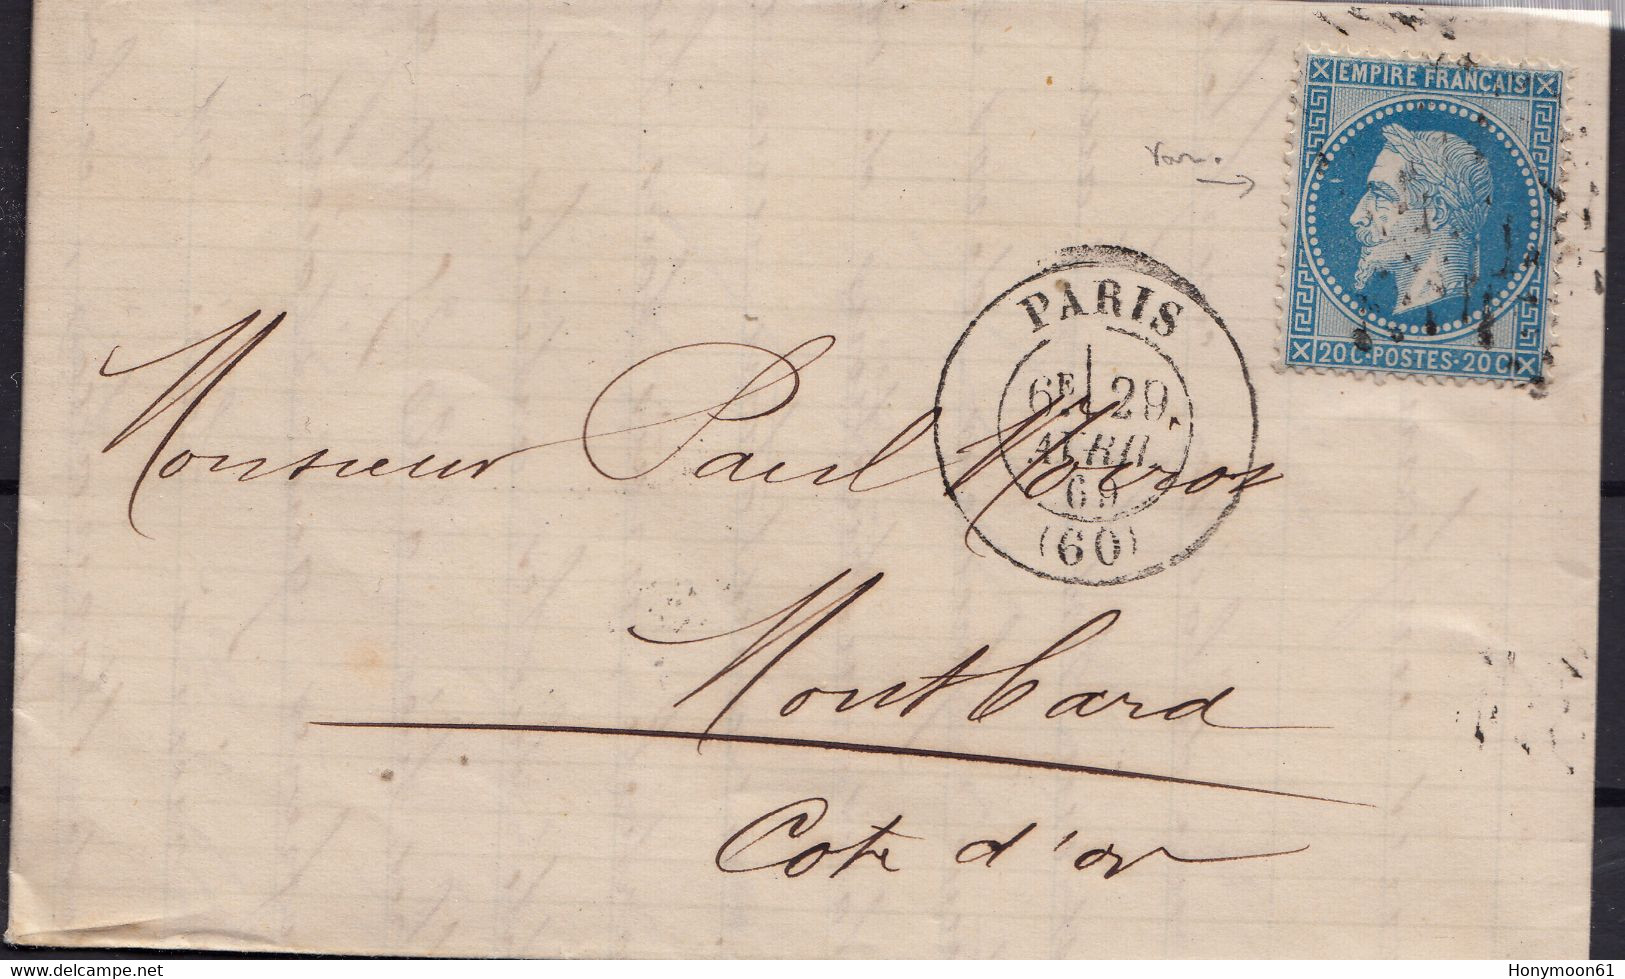 EMPIRE FRANÇAIS
20 C - POSTES - 20 C
Var.
PARIS
6E 29
AVRIL
69
(60)
Monsieur Paul
Montbard
Cote d'or
www.delcampe.net
Honymoon61